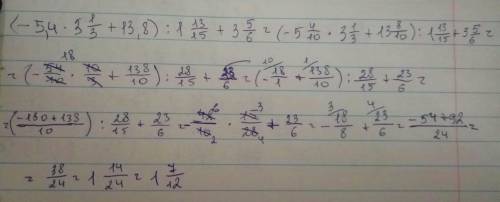 (-5,4 · 3 1/3 + 13,8) : 1 13/15 + 3 5/6 = (-5 4/10 · 3 1/3 + 13 8/10) : 1 13/15 + 3 5/6 =
= (-54/10 · 10/3 + 138/10) : 28/15 + 23/6 = (-18/1 + 138/10) : 28/15 + 23/6 =
= (-180+138/10) : 28/15 + 23/6 = -42/10 · 15/28 + 23/6 = -18/8 + 23/6 = -54+92/24 =
= 38/24 = 1 14/24 = 1 7/12